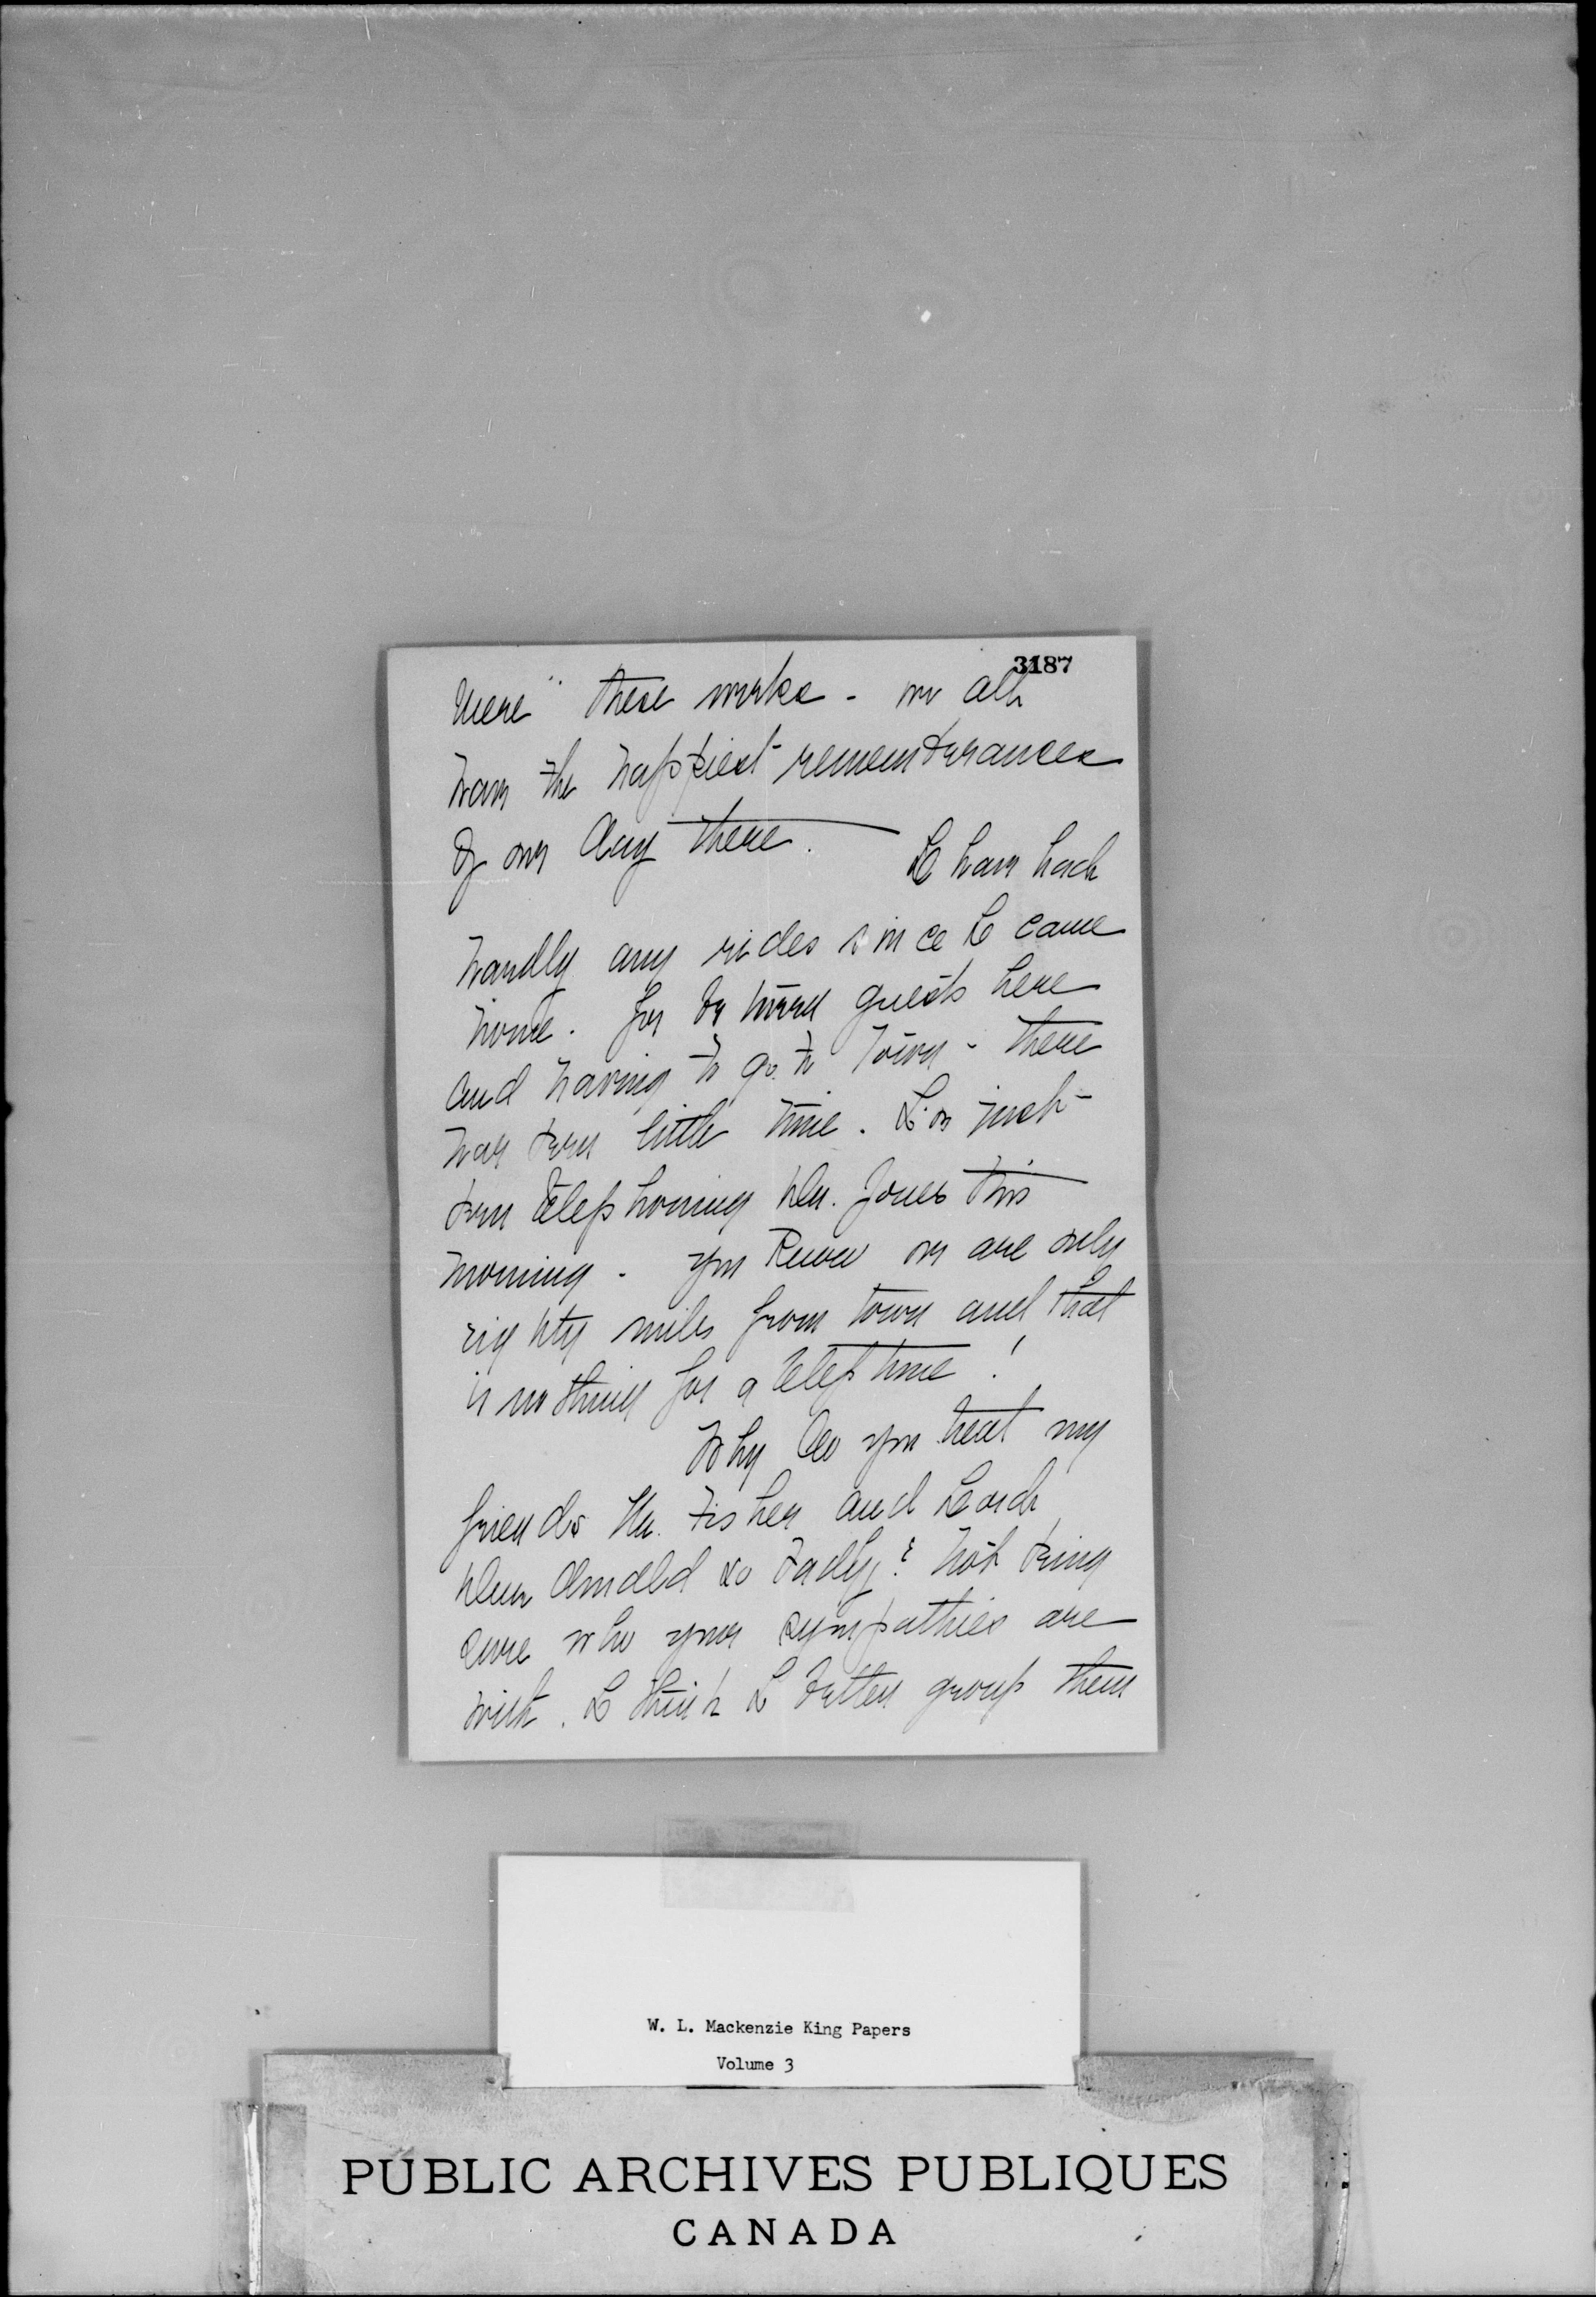 3187
Mere" these weeks - we all
have the happiest remembrances
of our day there. I have had
hardly any rides since I came
home. for by guests here
and having to go to Town - there
has been little time. I've just
been telephoning Mr. Jones this
morning. You know we are only
eighty miles from town and that
is nothing for a telephone!
Why do you treat my
friends Mr. Fisher and
Arnold so badly? Not being
sure who your sympathies are
with. I think I better group them
W. L. Mackenzie King Papers
Volume 3
PUBLIC ARCHIVES PUBLIQUES
CANADA